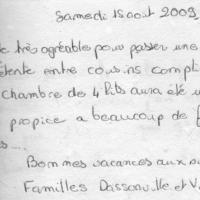 Samedi 15 aout 2009
très agréable pour passer une
entre cousins compli
chambre de 4 lits aura été u
propice a beaucoup de f
s....
Bonnes vacances aux su
Familles Dassonville et V